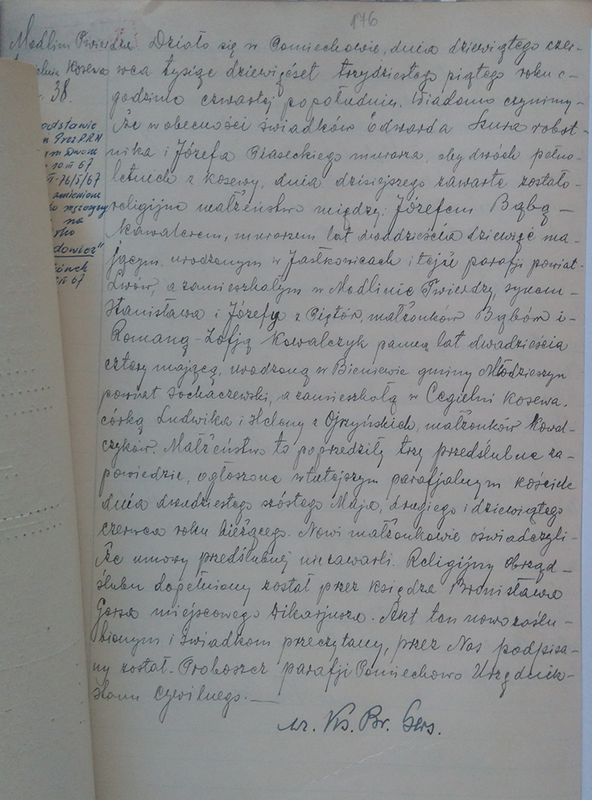 176
Modlin Twierdza
Kosewa
38.
Działo się w Pomiechowie, dnia dziewiątego czer-
wca tysiąc dziewięćset trzydziestego piątego roku o-
godzinie czwartej popołudniu. Wiadomo czynimy-
że w obecności świadków Edwarda robot-
nika i Józefa Piaseckiego murarza, obydwóch pełno-
letnich z Kosewy, dnia dzisiejszego zawarte zostało-
religijne małżeństwo między: Józefem Bąbą-
kawalerem, murarzem lat dwadzieścia dziewięć ma-
jącym, urodzonym w Jaśkowicach i tejże parafji powiat-
Lwów, a zamieszkałym w Modlinie Twierdzy, synem-
Stanisława i Józefy z Piętów, małżonków Bąbów i-
Romaną-Zofją Kowalczyk panną lat dwadzieścia
cztery mającą, urodzoną w Bieniewie gminy Młodzieszyn
powiat Sochaczewski, a zamieszkałą w Cegielni Kosewa,
córką Ludwika i Heleny z Ojrzyńskich, małżonków Kowal-
czyków. Małżeństwo to poprzedziły trzy przedślubne za-
powiedzie, ogłoszone w tutejszym parafjalnym kościele
dnia dwudziestego szóstego Maja, drugiego i dziewiątego
czerwca roku bieżącego. Nowi małżonkowie oświadczyli-
że umowy przedślubnej nie zawarli. Religijny obrzęd-
ślubu dopełniony został przez Księdza Bronisława
Gersa miejscowego Wikarjusza. Akt ten nowozaślu-
bionym i świadkom przeczytany, przez Nas podpisa-
ny został. Proboszcz parafji Pomiechowo Urzędnik-
Stanu Cywilnego.-
Ks. Br. Gers.
odstawie
Prez. P.R.N
67
76/5/67
zmienione
na
67